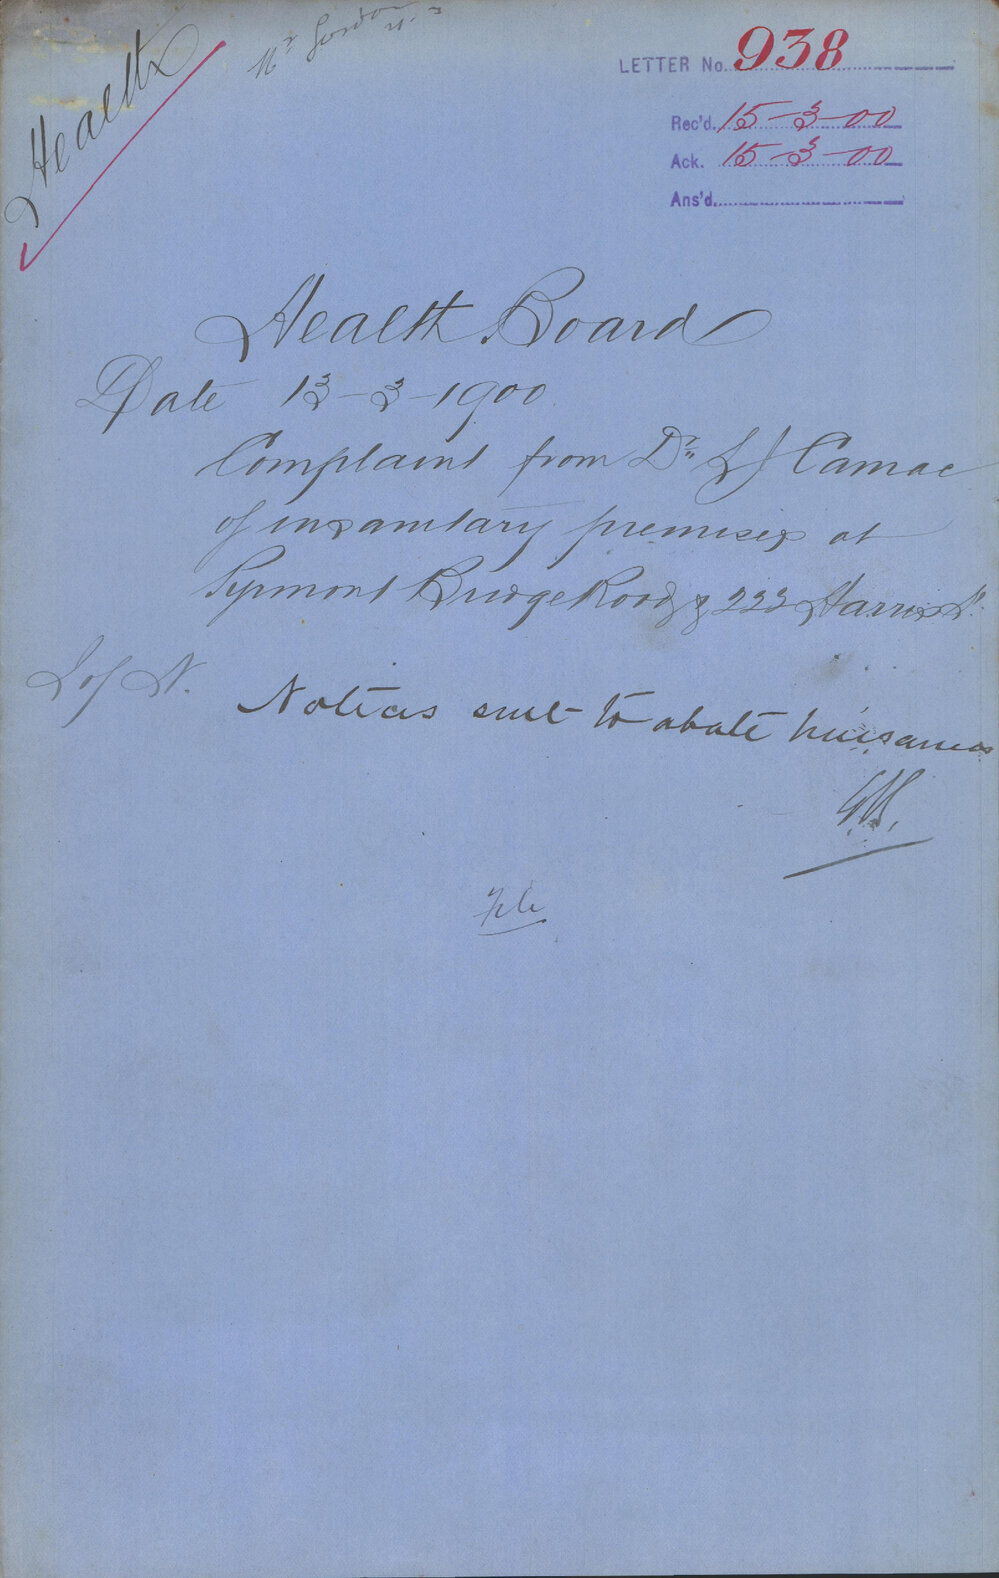 Health
Mr Gordon
LETTER No. 938
Rec'd. 15-3-00
Ack. 15-3-00
Ans'd.
Health Board
Date 13-3-1900
Complaint from Dr. L J Camac
of insanitary premises at
Pyrmont Bridge Road & 223 Harris St.
I of N.
Notices sent to abate nuisances
File